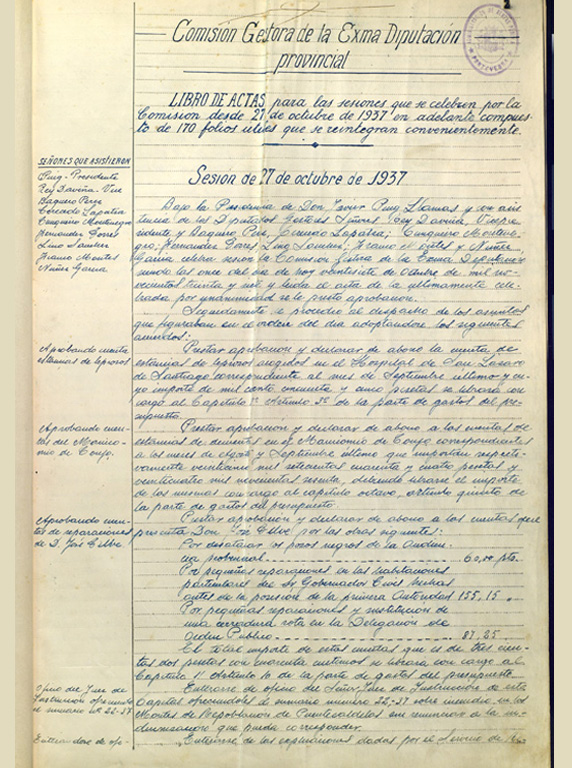 Comision Gestora de la Exma Diputación
provincial
LIBRO DE ACTAS para las sesiones que se celebren por la
Comision desde 27 de octubre de 1937 en adelante compues-
to de 170 folios utiles que se reintegran convenientemente.
SEÑORES QUE ASISTIERON
Puig - Presidente
Rey Daviña - Vice
Baquero Perez
Cerecedo Lapatra
Cunqueiro Montenegro
Hernandez Porres
Lino Sanchez
Franco Montes
Nuñez Garcia
Sesion de 27 de octubre de 1937
Bajo la Presidencia de Don Puig Llamas y con asis
tencia de los Diputados Gestores Señores Rey Daviña, Vicepre
sidente y Baquero Perez, Cerecedo Lapatra; Cunqueiro Montene-
gro; Hernandez Porres Lino Sanchez; Franco Montes y Nuñez
Garcia celebra sesion la Comision Gestora de la Exma Diputacion
siendo las once del dia de hoy veintisiete de Octubre de mil no-
vecientos treinta y siete y leida el acta de la ultimamente cele-
brada por unanimidad se le presto aprobacion.
Seguidamente se procedio al despacho de los asuntos
que figuraban en el orden del dia adoptandose los siguientes
acuerdos:
Aprobando cuenta
estancias de leprosos
Prestar aprobacion y declarar de abono la cuenta de
estancias de leprosos acogidos en el Hospital de San Lazaro
de Santiago correspondiente al mes de Septiembre ultimo y cu
yo importe de mil ciento cincuenta y cinco pesetas se librara con
cargo al Capitulo Articulo de la parte de gastos del pre-
supuesto.
Aprobando cuen-
tas del Manico-
mio de Conjo.
Prestar aprobacion y declarar de abono a las cuentas de
estancias de dementes en el Manicomio de Conjo correspondientes
a los meses de Agosto y Septiembre ultimo que importan respec-
tivamente veinticinco mil setecientas cuarenta y cuatro pesetas y
veinticuatro mil novecientas sesenta, debiendo librarse el importe
de las mismas con cargo al capitulo octavo, articulo quinto de
la parte de gastos del presupuesto.
Aprobando cuen-
tas de reparaciones
de D. José
Prestar aprobacion y declarar de abono a las cuentas que
presenta Don José por las obras siguientes:
Por desatascar los pozos negros de la Audien-
cia provincial 60,00 pts.
Por pequeñas reparaciones en las habitaciones
particulares del Sr Gobernador Civil hechas
antes de la posesion de la primera Autoridad 155,15 "
Por pequeñas reparaciones y sustitucion de
una cerradura rota en la Delegacion de
Orden Publico 87,25
El total importe de estas cuentas que es de tres cien-
tas dos pesetas con cuarenta centimos se librara con cargo al
Capitulo 11 Articulo 10 de la parte de gastos del presupuesto.
Oficio del Juez de
Instrucción ofreciendo
el sumario Nº 22-37
Enterarse de oficio del Señor Juez de Instruccion de esta
Capital ofreciendole el sumario numero 22-37 sobre incendio en los
Montes de Repoblacion de Puentecaldelas sin renunciar a la in-
demnizacion que pueda corresponder.
Enterandose de ofi-
Enterarse de las explicaciones dadas por el Servicio de